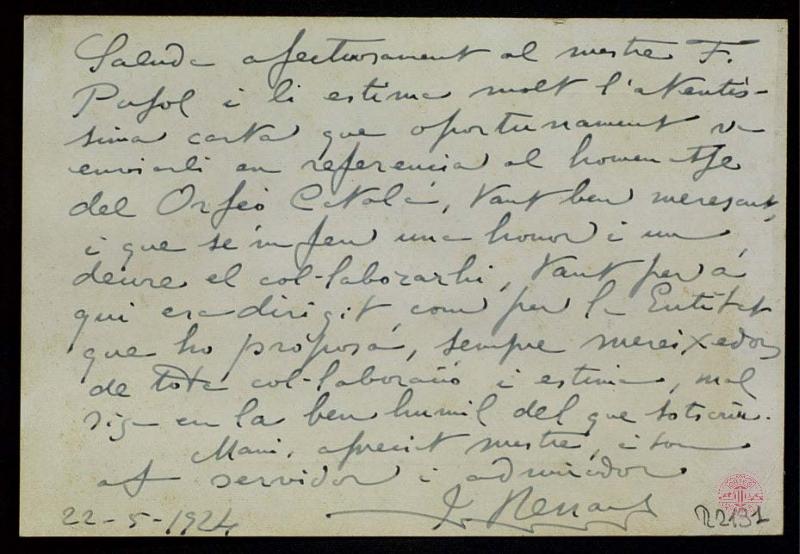 Saluda afectuosament al mestre F.
Pujol i li estima molt l'atentís-
sima carta que oportunament va
enviarli en referencia al homenatge
del Orfeó Català, tant ben merescut,
i que se'm feu una honor i un
deure el col-laborarhi, tant per á
qui era dirigit, com per la Entitat
que ho proposá, sempre mereixedora
de tota col-laboració i estima, mal
siga en la ben humil del que sotscriu.
Mani, apreciat mestre, i son
af servidor i admirador
J. Renart
22-5-1924
R2131